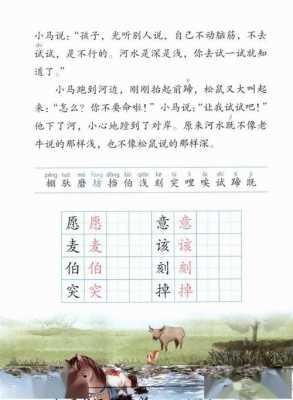 小马说：“孩子，光听别人说，自己不动脑筋，不去
试试，是不行的。河水是深是浅，你去试一试就知
道了。”
小马跑到河边，刚刚抬起前蹄，松鼠又大叫起
来：“怎么？你不要命啦！”小马说：“让我试试吧！”
他下了河，小心地蹚到了对岸。原来河水既不像老
牛说的那样浅，也不像松鼠说的那样深。
péng tuó mò fáng dǎng bó qiǎn kè tū āi shì tí jì
棚 驮 磨 坊 挡 伯 浅 刻 突 哩 唉 试 蹄 既
愿 愿 意 意
麦 麦 该 该
伯 伯 刻 刻
突 突 掉 掉